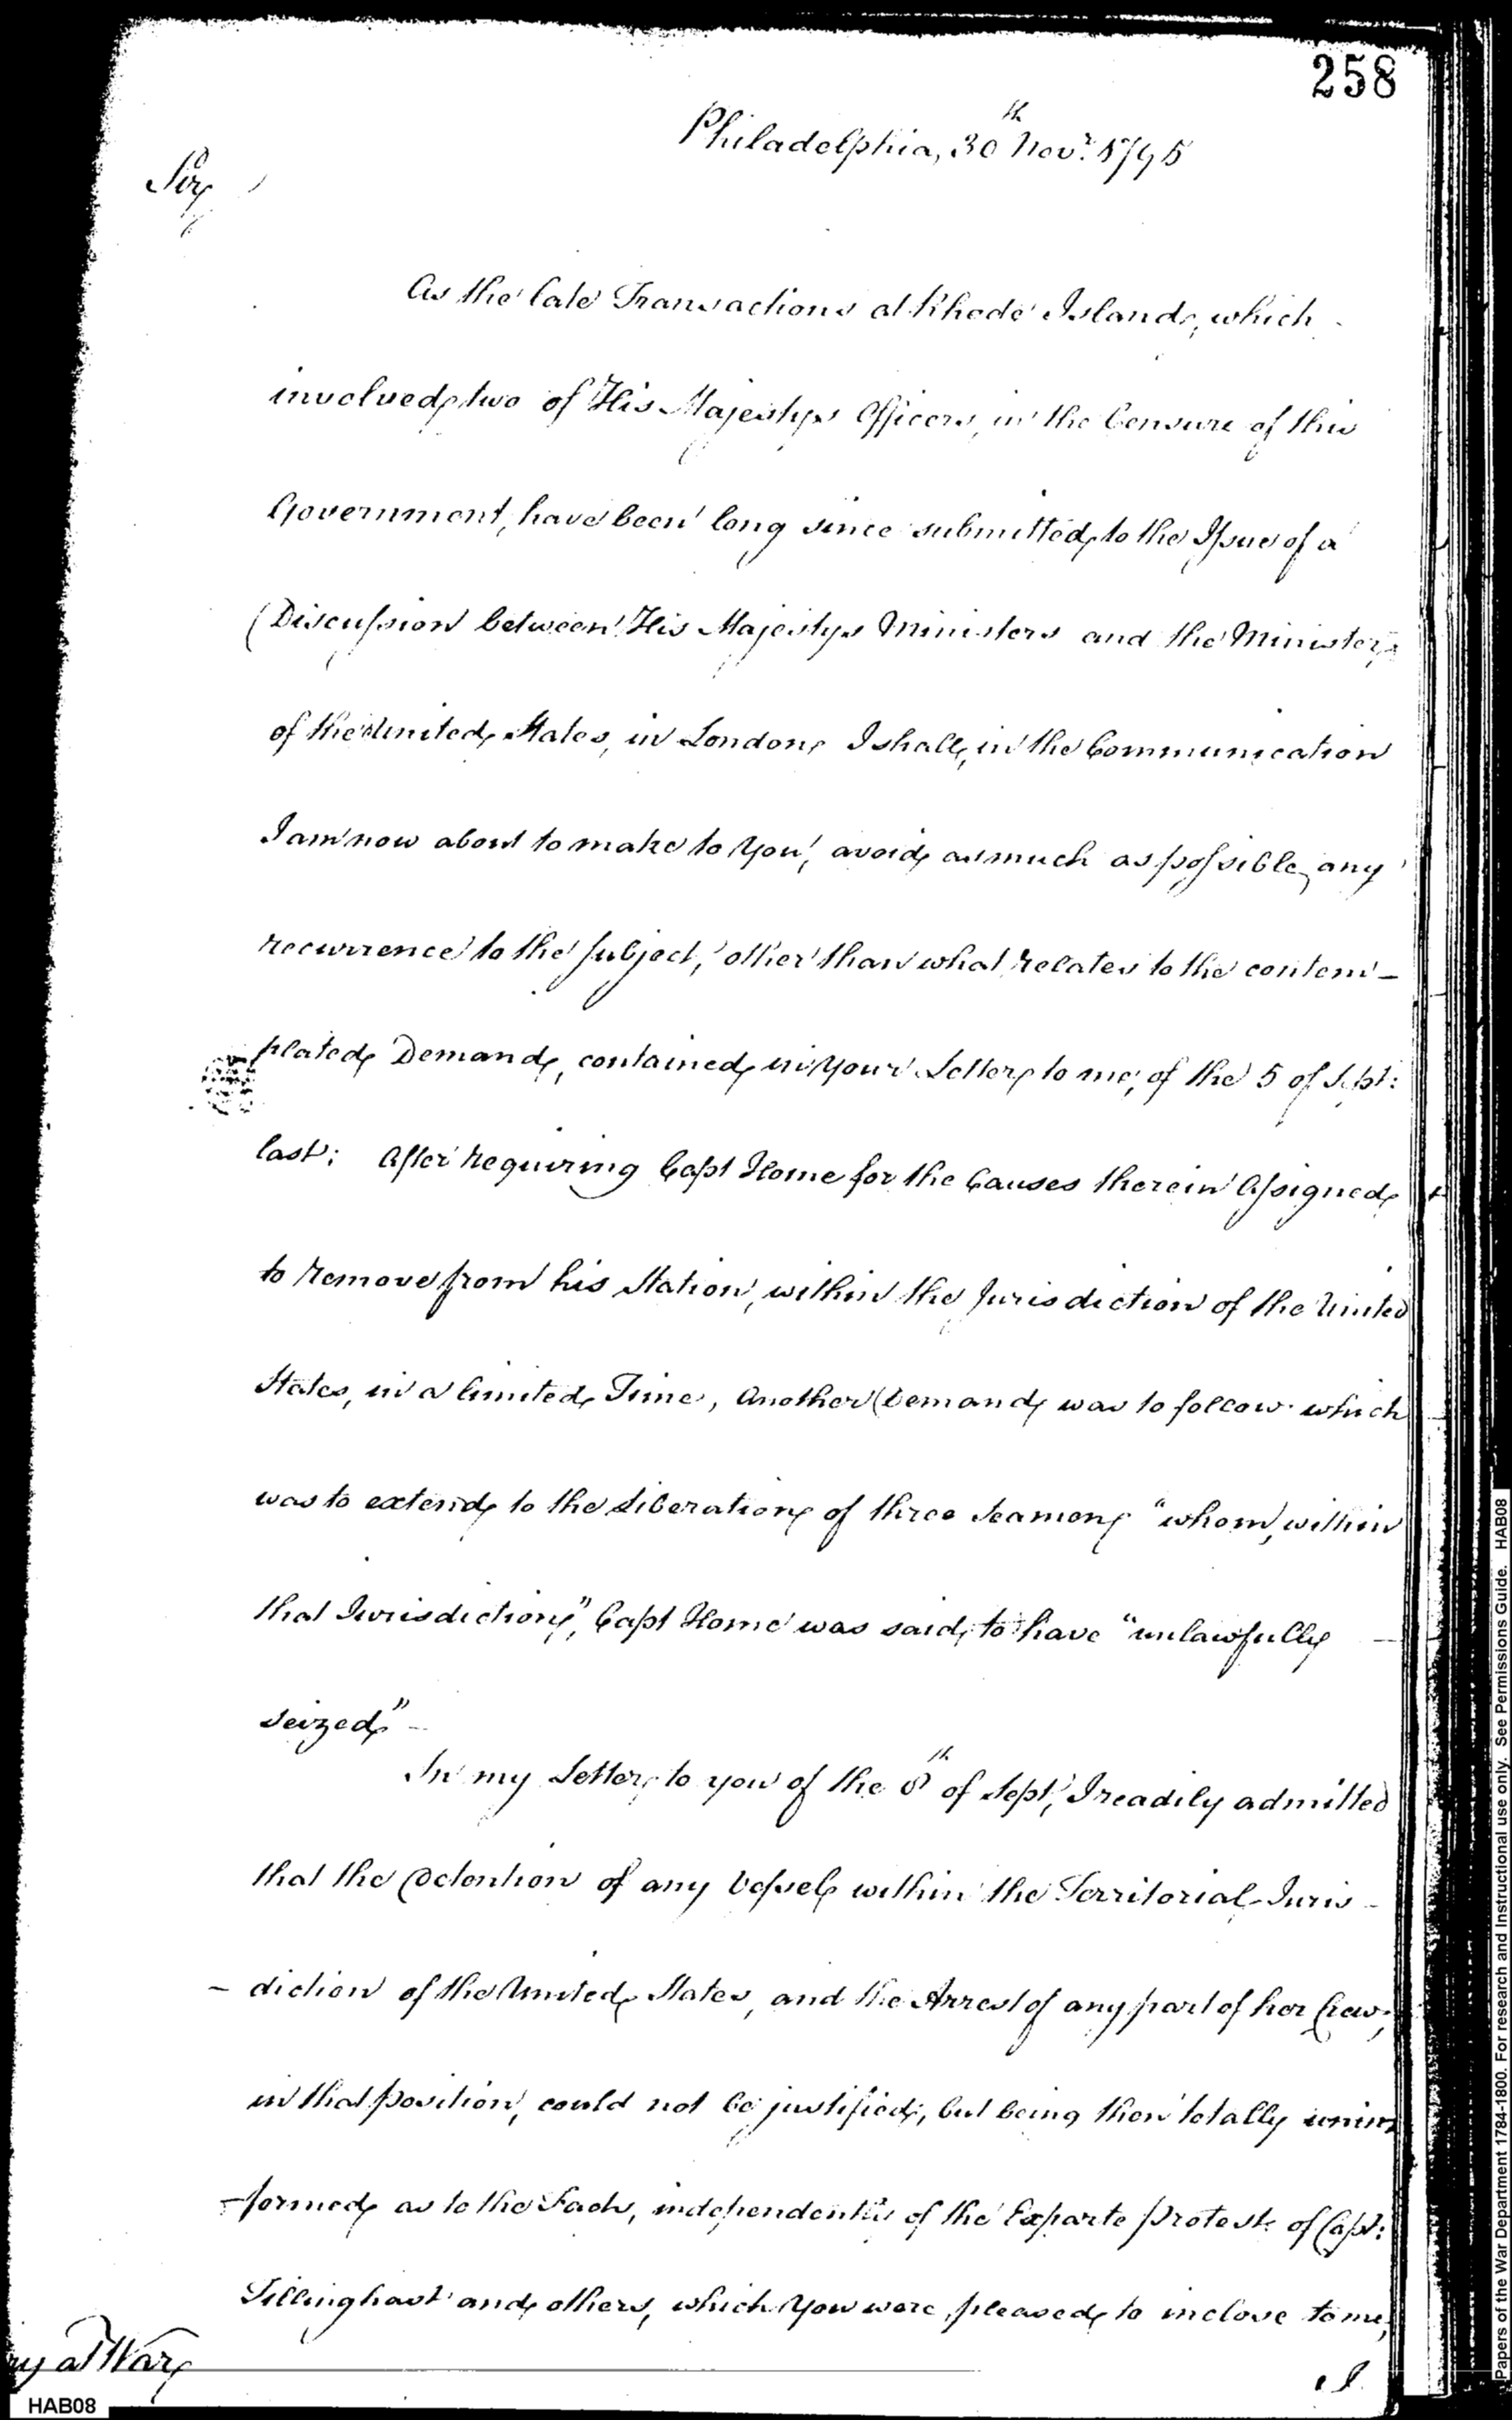 258
Philadelphia, 30th Novr. 1795
Sir
As the late Transactions at Rhode Island, which
involved two of His Majestys Officers, in the Censure of this
Government, have been long since submitted to the Issue of a
Discussion between His Majestys Ministers and the Minister
of the United States, in London, I shall, in the Communication
I am now about to make to You, avoid as much as possible, any
recurrence to the subject, other than what relates to the contem-
plated Demand, contained in Your Letter to me, of the 5 of Sept:
last; After requiring Capt Home for the Causes therein Assigned
to remove from his Station, within the Jurisdiction of the United
States, in a limited Time, Another Demand was to follow which
was to extend to the Liberation of three Seamen, "whom, within
that Jurisdiction", Capt Home was said, to have "unlawfully
seized" -
In my Letter, to you of the 8th of Sept, I readily admitted
that the Detention of any Vessel within the Territorial Juris-
-diction of the United States, and the Arrest of any part of her Crew,
in that position, could not be justified, but being then totally unin
-formed as to the Facts, independently of the Exparte Protests of Capt:
Tillinghast and others, which You were pleased to inclose to me,
I
at War
HAB08
Papers of the War Department 1784-1800. For research and Instructional use only. See Permissions Guide. HAB08